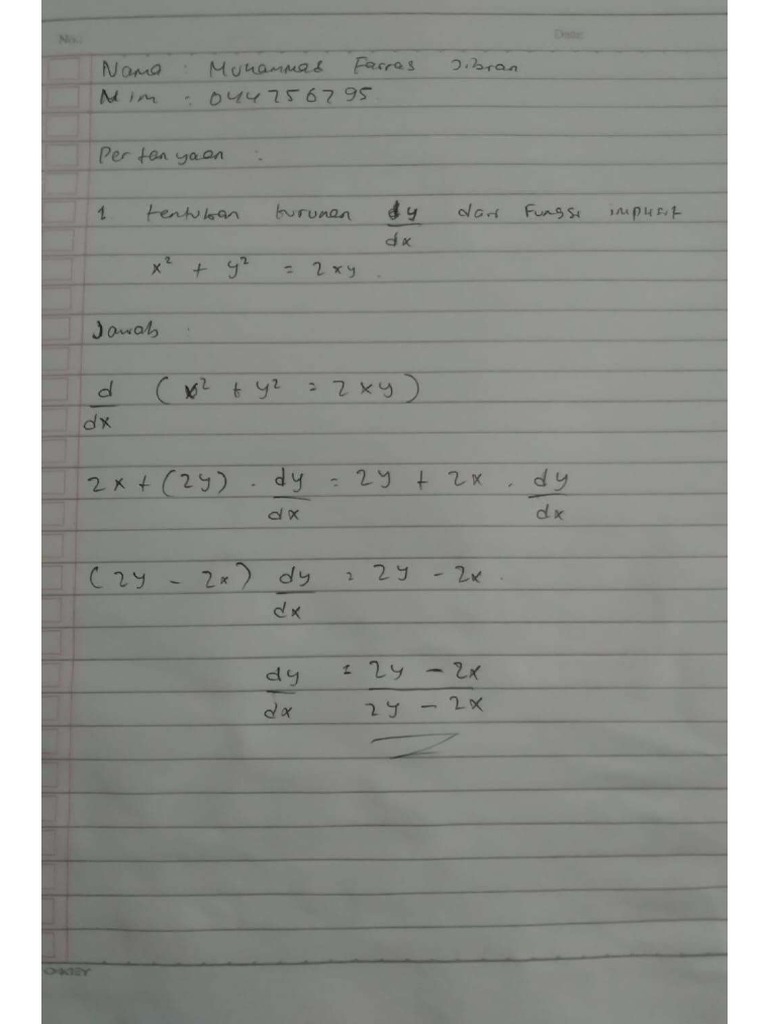 No.: Date:
Nama : Muhammad Farras Jibran
Nim : 044256295
Pertanyaan :
1 tentukan turunan dy/dx dari Fungsi implisit
x² + y² = 2xy.
Jawab :
d/dx (x² + y² = 2xy)
2x + (2y) . dy/dx = 2y + 2x . dy/dx
(2y - 2x) dy/dx = 2y - 2x.
dy/dx = 2y - 2x / 2y - 2x